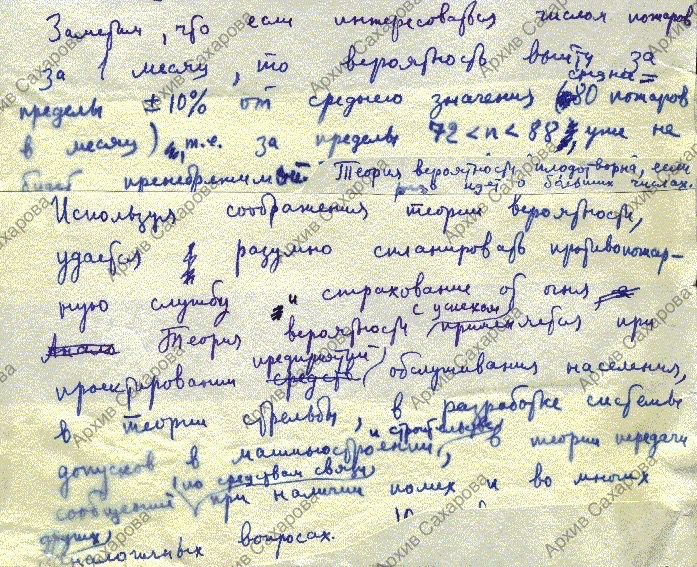 Заметим, что если интересоваться числом пожаров
за 1 месяц, то вероятность выйти за
пределы ±10% от среднего значения (80 пожаров
в месяц), т.е. за пределы 72 < n < 88, уже не
будет пренебрежимой. Теория вероятности плодотворна, если
речь идет о больших числах.
Используя соображения теории вероятности,
удается разумно спланировать противопожар-
ную службу и страхование от огня.
Теория вероятности с успехом применяется при
проектировании предприятий обслуживания населения,
в теории стрельбы, в разработке системы
допусков в машиностроении и строительстве, в теории передачи
сообщений по средствам связи при наличии помех и во многих
других аналогичных вопросах.
Архив Сахарова